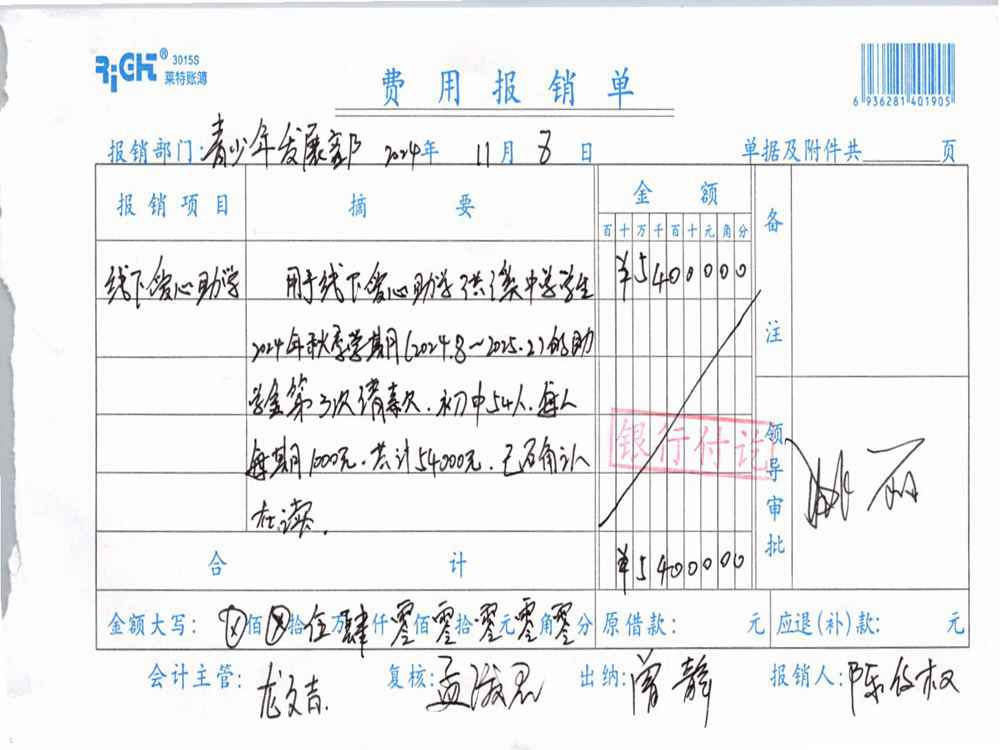 RiGHT® 3015S
莱特账簿
费用报销单
6 936281 401905
报销部门:青少年发展部 2024年 11月 8日 单据及附件共 页
报销项目 摘要 金额 备注
百十万千百十元角分
线下爱心助学 用于线下爱心助学洪溪中学学生 ¥5400000
2024年秋季学期月(2024.8~2025.2)的助
学金第3次请款.初中54人.每人
每期月1000元.共计54000元.已确认
在读.
银行付讫
领导审批
合计 ¥5400000
金额大写: ⊗佰⊗拾伍万肆仟零佰零拾零元零角零分 原借款: 元 应退(补)款: 元
会计主管: 龙文吉 复核: 孟 出纳: 曾静 报销人: 陈